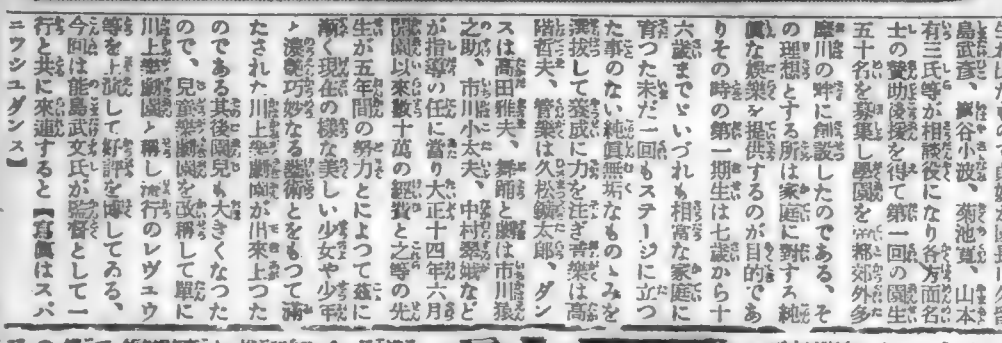 島武彦、巖谷小波、菊池寛、山本
有三氏等が相談役になり各方面名
士の賛助後援を得て第一回の園生
五十名を募集し學園を帝都郊外多
摩川の畔に創設したのである、そ
の理想とする所は家庭に對する純
眞な娯樂を提供するのが目的であ
りその時の第一期生は七歳から十
六歳までゞいづれも相當な家庭に
育つた未だ一回もステージに立つ
た事のない純眞無垢なものゝみを
選拔して養成に力を注ぎ音樂は高
階哲夫、管樂は久松鏡太郎、ダン
スは高田雅夫、舞踊と劇は市川猿
之助、市川小太夫、中村翠娥など
が指導の任に當り大正十四年六月
開園以來數十萬の經費と之等の先
生が五年間の努力とによつて茲に
漸く現在の樣な美しい少女や少年
と濃艶巧妙なる藝術とをもつて滿
たされた川上樂劇園が出來上つた
のである其後園兒も大きくなつた
ので、兒童樂劇園を改稱して單に
川上樂劇園と稱し流行のレヴェウ
等を上演して好評を博してゐる、
今回は能島武文氏が監督として一
行と共に來連すると【寫眞はスパ
ニッシユダンス】